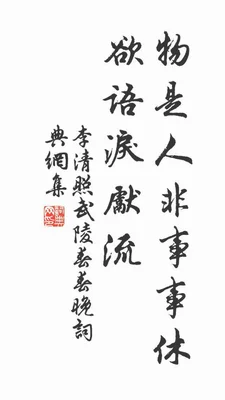 物是人非事事休
欲語淚獻流
李清照武陵春春晚詞
典網集